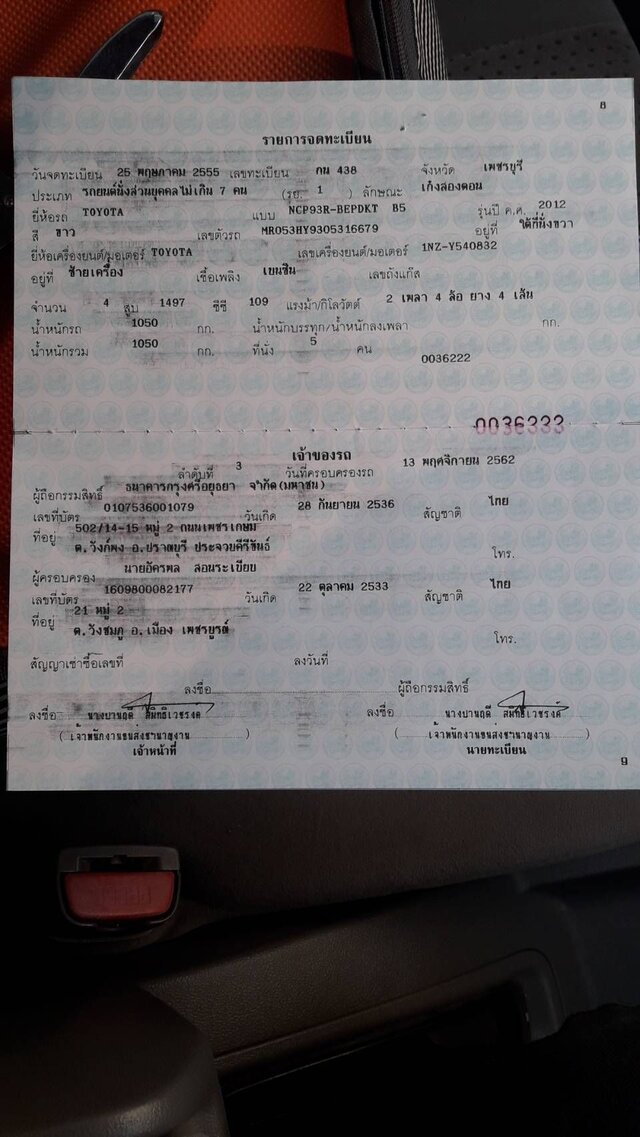 8
รายการจดทะเบียน
วันจดทะเบียน 25 พฤษภาคม 2555 เลขทะเบียน กน 438 จังหวัด เพชรบุรี
ประเภท รถยนต์นั่งส่วนบุคคลไม่เกิน 7 คน (รย. 1 ) ลักษณะ เก๋งสองตอน
ยี่ห้อรถ TOYOTA แบบ NCP93R-BEPDKT B5 รุ่นปี ค.ศ. 2012
สี ขาว เลขตัวรถ MR053HY9305316679 อยู่ที่ ใต้ที่นั่งขวา
ยี่ห้อเครื่องยนต์/มอเตอร์ TOYOTA เลขเครื่องยนต์/มอเตอร์ 1NZ-Y540832
อยู่ที่ ซ้ายเครื่อง เชื้อเพลิง เบนซิน เลขถังแก๊ส
จำนวน 4 สูบ 1497 ซีซี 109 แรงม้า/กิโลวัตต์ 2 เพลา 4 ล้อ ยาง 4 เส้น
น้ำหนักรถ 1050 กก. น้ำหนักบรรทุก/น้ำหนักลงเพลา กก.
น้ำหนักรวม 1050 กก. ที่นั่ง 5 คน
0036222
0036333
เจ้าของรถ
ลำดับที่ 3 วันที่ครอบครองรถ 13 พฤศจิกายน 2562
ผู้ถือกรรมสิทธิ์ ธนาคารกรุงศรีอยุธยา จำกัด (มหาชน)
เลขที่บัตร 0107536001079 วันเกิด 28 กันยายน 2536 สัญชาติ ไทย
ที่อยู่ 502/14-15 หมู่ 2 ถนนเพชรเกษม
ต.วังก์พง อ.ปราณบุรี ประจวบคีรีขันธ์ โทร.
ผู้ครอบครอง นายอัครพล สอนระเบียบ
เลขที่บัตร 1609800082177 วันเกิด 22 ตุลาคม 2533 สัญชาติ ไทย
ที่อยู่ 21 หมู่ 2
ต.วังชมภู อ.เมือง เพชรบูรณ์ โทร.
สัญญาเช่าซื้อเลขที่ ลงวันที่
ลงชื่อ ผู้ถือกรรมสิทธิ์
ลงชื่อ นางปานฤดี ลงชื่อ นางปานฤดี
( เจ้าพนักงานขนส่งชำนาญงาน ) ( เจ้าพนักงานขนส่งชำนาญงาน )
เจ้าหน้าที่ นายทะเบียน
9